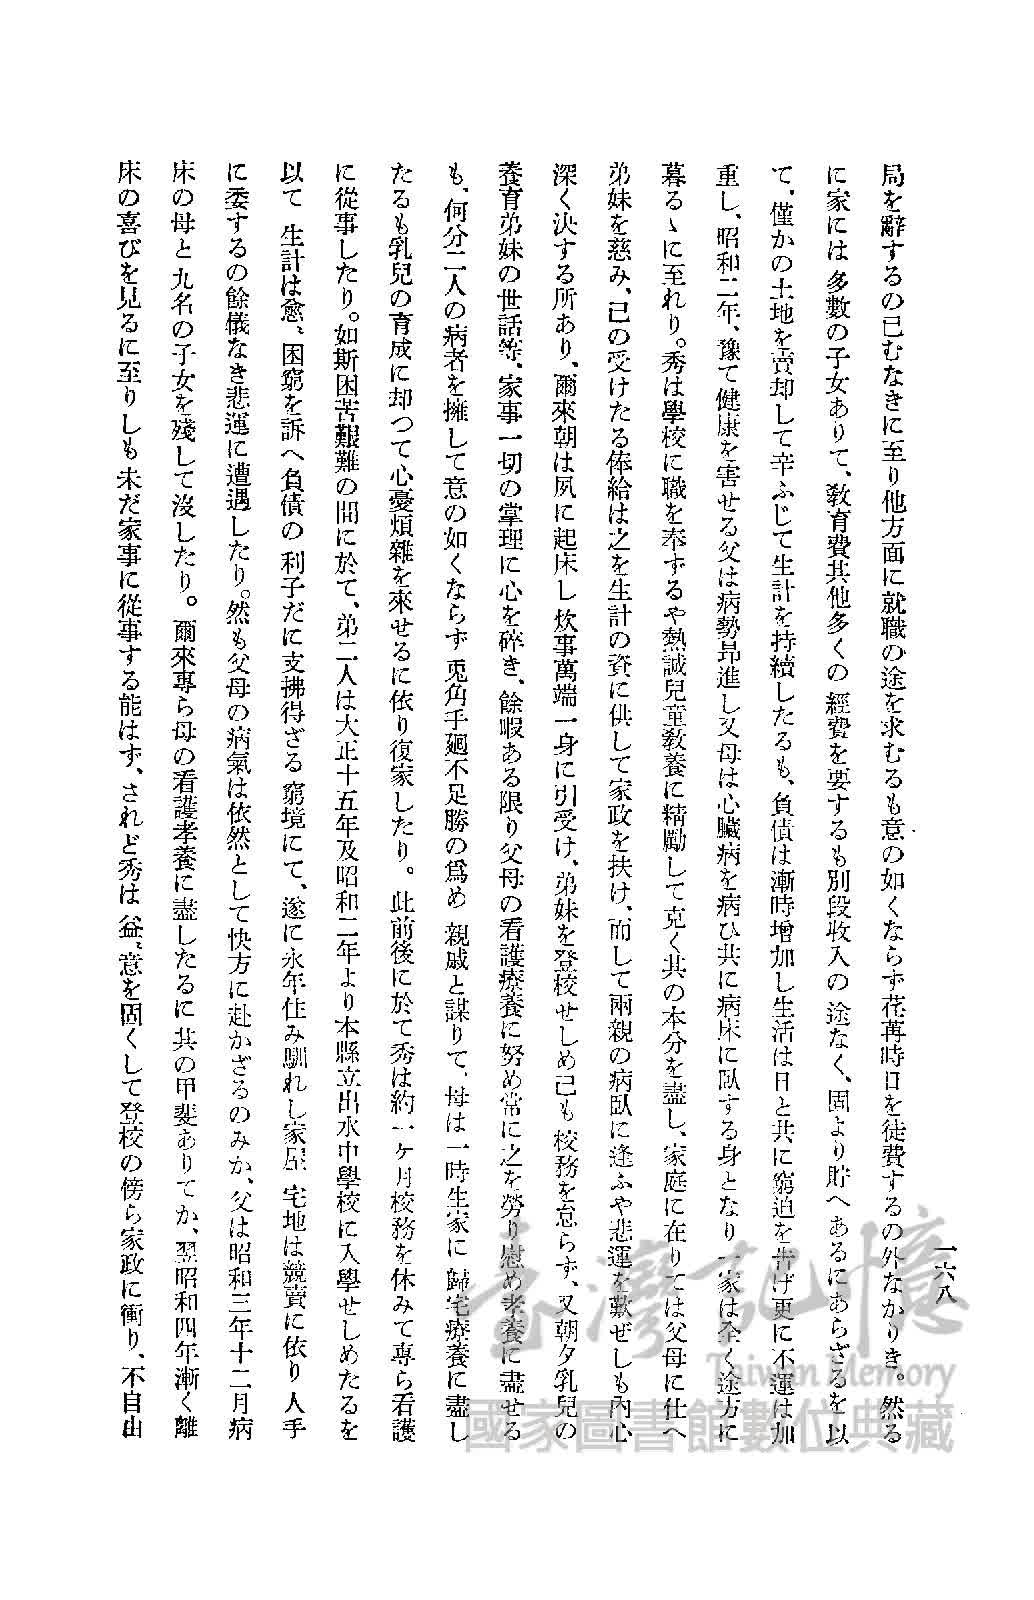 一六八
局を辭するの已むなきに至り他方面に就職の途を求むるも意の如くならず荏苒時日を徒費するの外なかりき。然る
に家には多數の子女ありて、敎育費其他多くの經費を要するも別段收入の途なく、固より貯へあるにあらざるを以
て、僅かの土地を賣却して辛ふじて生計を持續したるも、負債は漸時增加し生活は日と共に窮迫を吿げ更に不運は加
重し、昭和二年、豫て健康を害せる父は病勢昻進し又母は心臟病を病ひ共に病床に臥する身となり一家は全く途方に
暮るゝに至れり。秀は學校に職を奉ずるや熱誠兒童敎養に精勵して克く其の本分を盡し、家庭に在りては父母に仕へ
弟妹を慈み、己の受けたる俸給は之を生計の資に供して家政を扶け、而して兩親の病臥に逢ふや悲運を歎ぜしも內心
深く決する所あり、爾來朝は夙に起床し炊事萬端一身に引受け、弟妹を登校せしめ己も校務を怠らず、又朝夕乳兒の
養育弟妹の世話等、家事一切の掌理に心を碎き、餘暇ある限り父母の看護療養に努め常に之を勞り慰め孝養に盡せる
も、何分二人の病者を擁して意の如くならず兎角手廻不足勝の爲め親戚と謀りて、母は一時生家に歸宅療養に盡し
たるも乳兒の育成に却つて心憂煩雜を來せるに依り復家したり。此前後に於て秀は約一ヶ月校務を休みて專ら看護
に從事したり。如斯困苦艱難の間に於て、弟二人は大正十五年及昭和二年より本縣立出水中學校に入學せしめたるを
以て生計は愈〻困窮を訴へ負債の利子だに支拂得ざる窮境にて、遂に永年住み馴れし家屋宅地は競賣に依り人手
に委するの餘儀なき悲運に遭遇したり。然も父母の病氣は依然として快方に赴かざるのみか、父は昭和三年十二月病
床の母と九名の子女を殘して沒したり。爾來專ら母の看護孝養に盡したるに其の甲斐ありてか、翌昭和四年漸く離
床の喜びを見るに至りしも未だ家事に從事する能はず、されど秀は益〻意を固くして登校の傍ら家政に衝り、不自由
臺灣記憶
Taiwan Memory
國家圖書館數位典藏